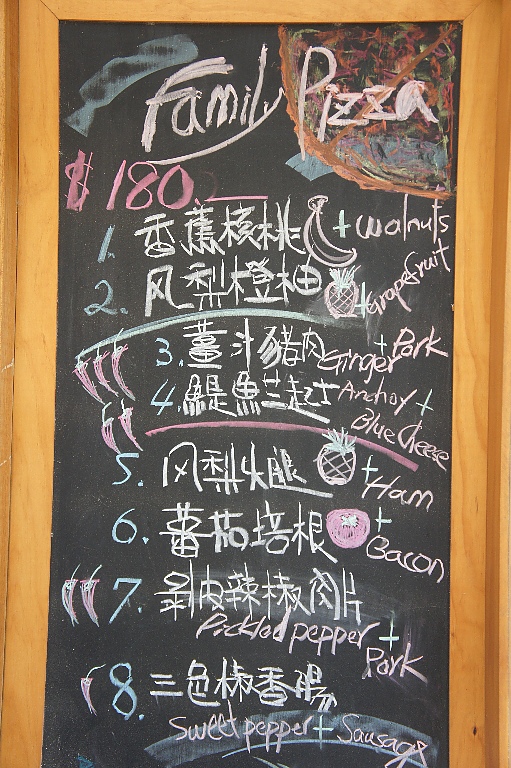 Family Pizza
$180.
1. 香蕉核桃 + walnuts
2. 风梨橙柚 + Grapefruit
3. 薑汁豬肉 Ginger + Pork
4. 鯷魚芝起士 Anchoy + Blue Cheese
5. 风梨火腿 + Ham
6. 蕃茄培根 + Bacon
7. 剝皮辣椒肉片
Pickled pepper + Pork
8. 三色椒香腸
Sweet pepper + Sausage